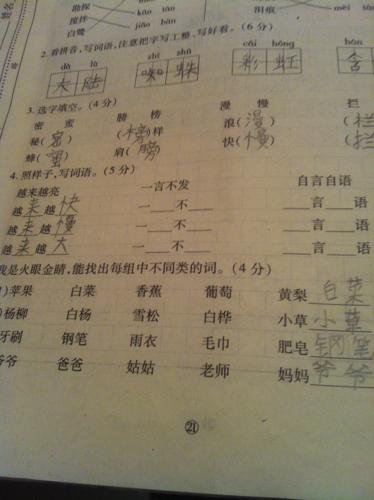 姓名
勘探 kān tàn
搅拌 jiǎo bàn
白鹭
泪痕
(6分)
2.看拼音,写词语,注意把字写工整、写好看。(6分)
dà lù zhī zhū cǎi hóng hán
大陆 蜘蛛 彩虹 含
3.选字填空。(4分)
密 蜜 膀 榜 漫 慢 拦
秘(密) (榜)样 浪(漫) (栏
蜂(蜜) 肩(膀) 快(慢) (拦
4.照样子,写词语。(5分)
越来越亮 一言不发 自言自语
越来越快 一____不____ ____言____语
越来越慢 一____不____ ____言____语
越来越大 一____不____ ____言____语
我是火眼金睛,能找出每组中不同类的词。(4分)
1)苹果 白菜 香蕉 葡萄 黄梨 白菜
)杨柳 白杨 雪松 白桦 小草 小草
牙刷 钢笔 雨衣 毛巾 肥皂 钢笔
爷爷 爸爸 姑姑 老师 妈妈 爷爷
21